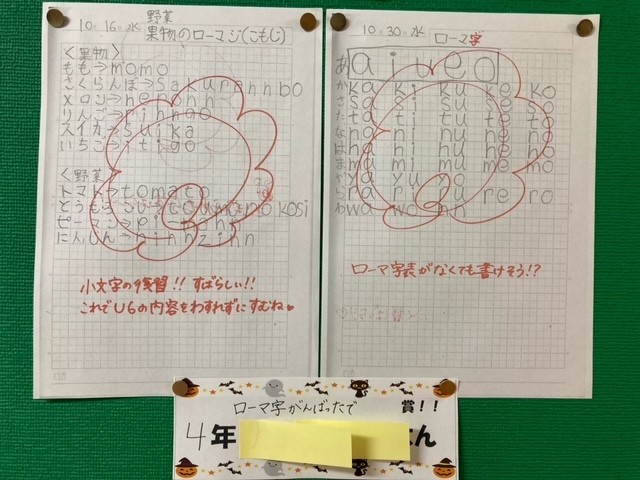 10.16.水 野菜
果物のローマジ(こもじ)
<果物>
もも→momo
さくらんぼ→sakurannbo
メロン→meronn
りんご→rinngo
スイカ→suika
いちご→itigo
<野菜>
トマト→tomato
とうもろこし→toumorokosi
ピーマン→pi-mann
にんじん→ninnzinn
小文字の練習!! すばらしい!!
これでU6の内容をわすれずにすむね
10.30.水
ローマ字
あ a i u e o
か ka ki ku ke ko
さ sa si su se so
た ta ti tu te to
な na ni nu ne no
は ha hi hu he ho
ま ma mi mu me mo
や ya yu yo
ら ra ri ru re ro
わ wa wo nn
ローマ字表がなくても書けそう!?
ローマ字がんばったで賞!!
4年